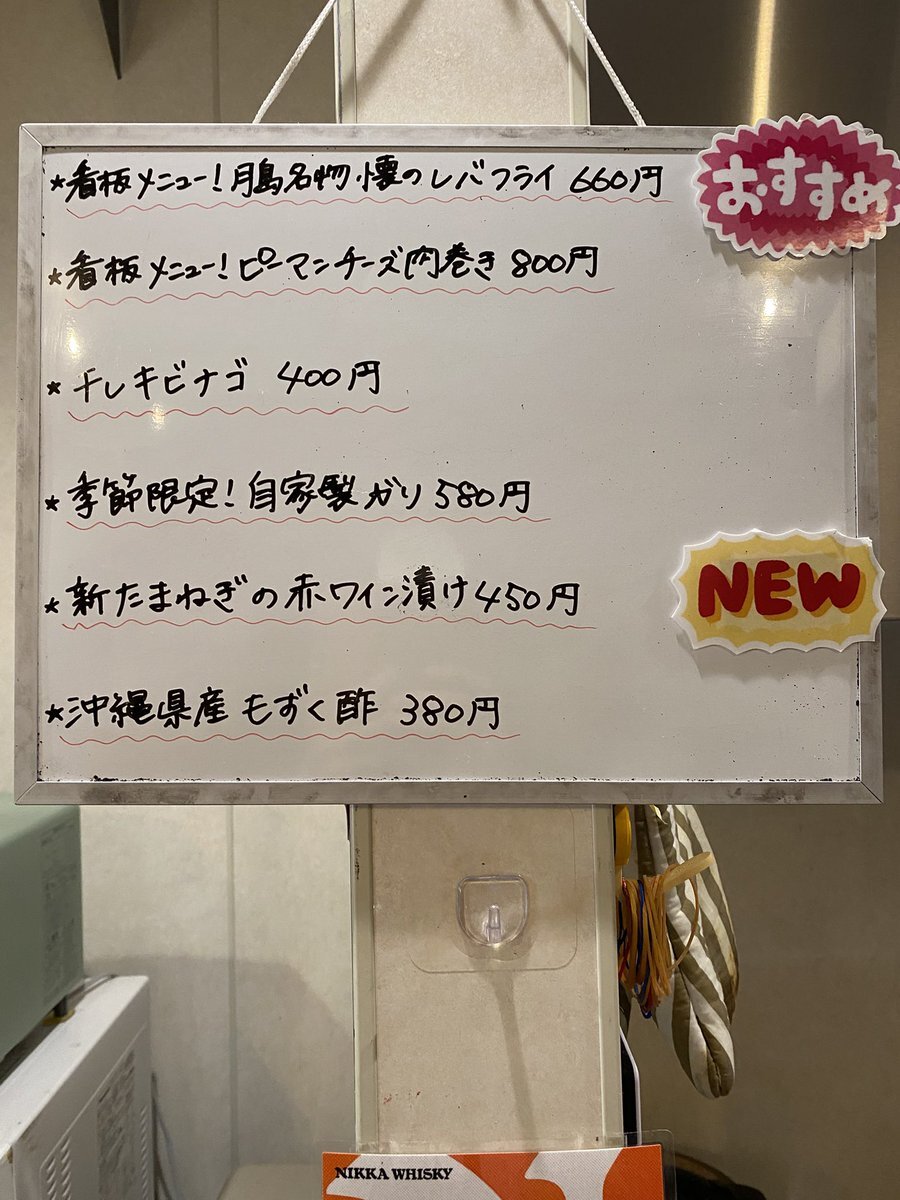 ★看板メニュー!月島名物・懐のレバフライ 660円
おすすめ
★看板メニュー!ピーマンチーズ肉巻き 800円
★干しキビナゴ 400円
★季節限定!自家製ガリ 580円
★新たまねぎの赤ワイン漬け 450円
NEW
★沖縄県産もずく酢 380円
NIKKA WHISKY